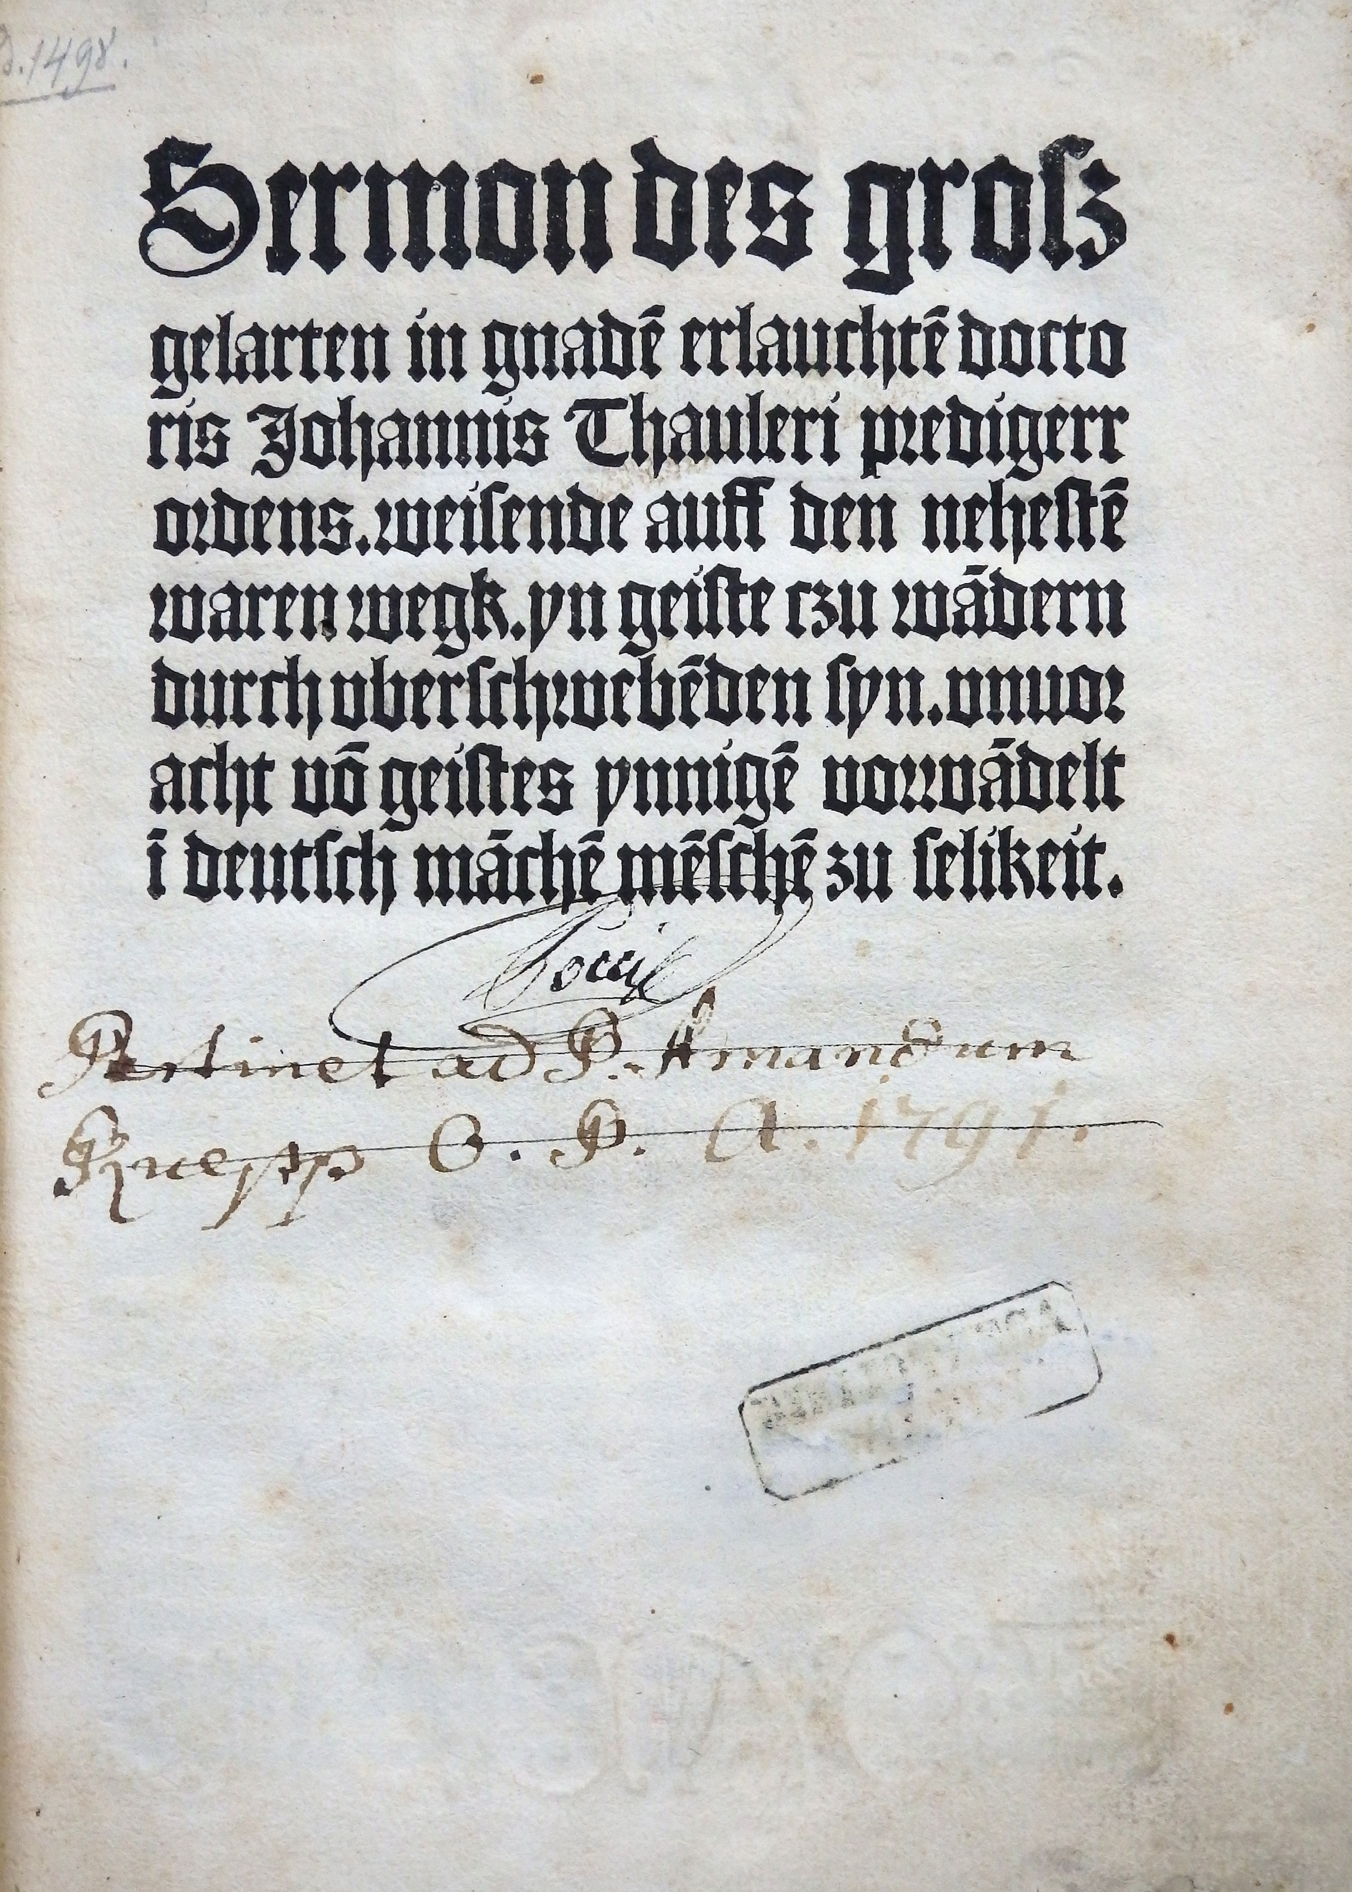 d. 1498.
Sermon des groſz
gelarten in gnadē erlauchtē docto
ris Johannis Thauleri predigerr
ordens. weiſende auff den neheſtē
waren wegk. yn geiſte czu wādern
durch vberſchwebēden ſyn. vnuor
acht vō geiſtes ynnigē vorwādelt
ī deutſch māchē mēſchē zu ſelikeit.
Pertinet ad P. Amandum
Knepp O. P. A. 1791.